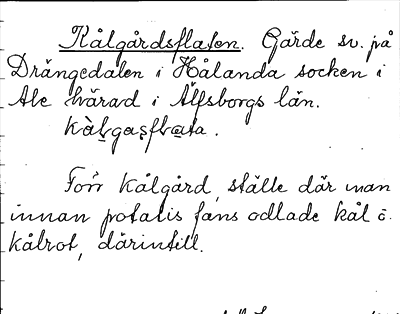 Kålgårdsflaten. Gärde sv. på
Drängedalen i Hålanda socken i
Ale härad i Älfsborgs län.
kàḷgaṣflata.
Förr kålgård, ställe där man
innan potatis fans odlade kål o.
kålrot, därintill.